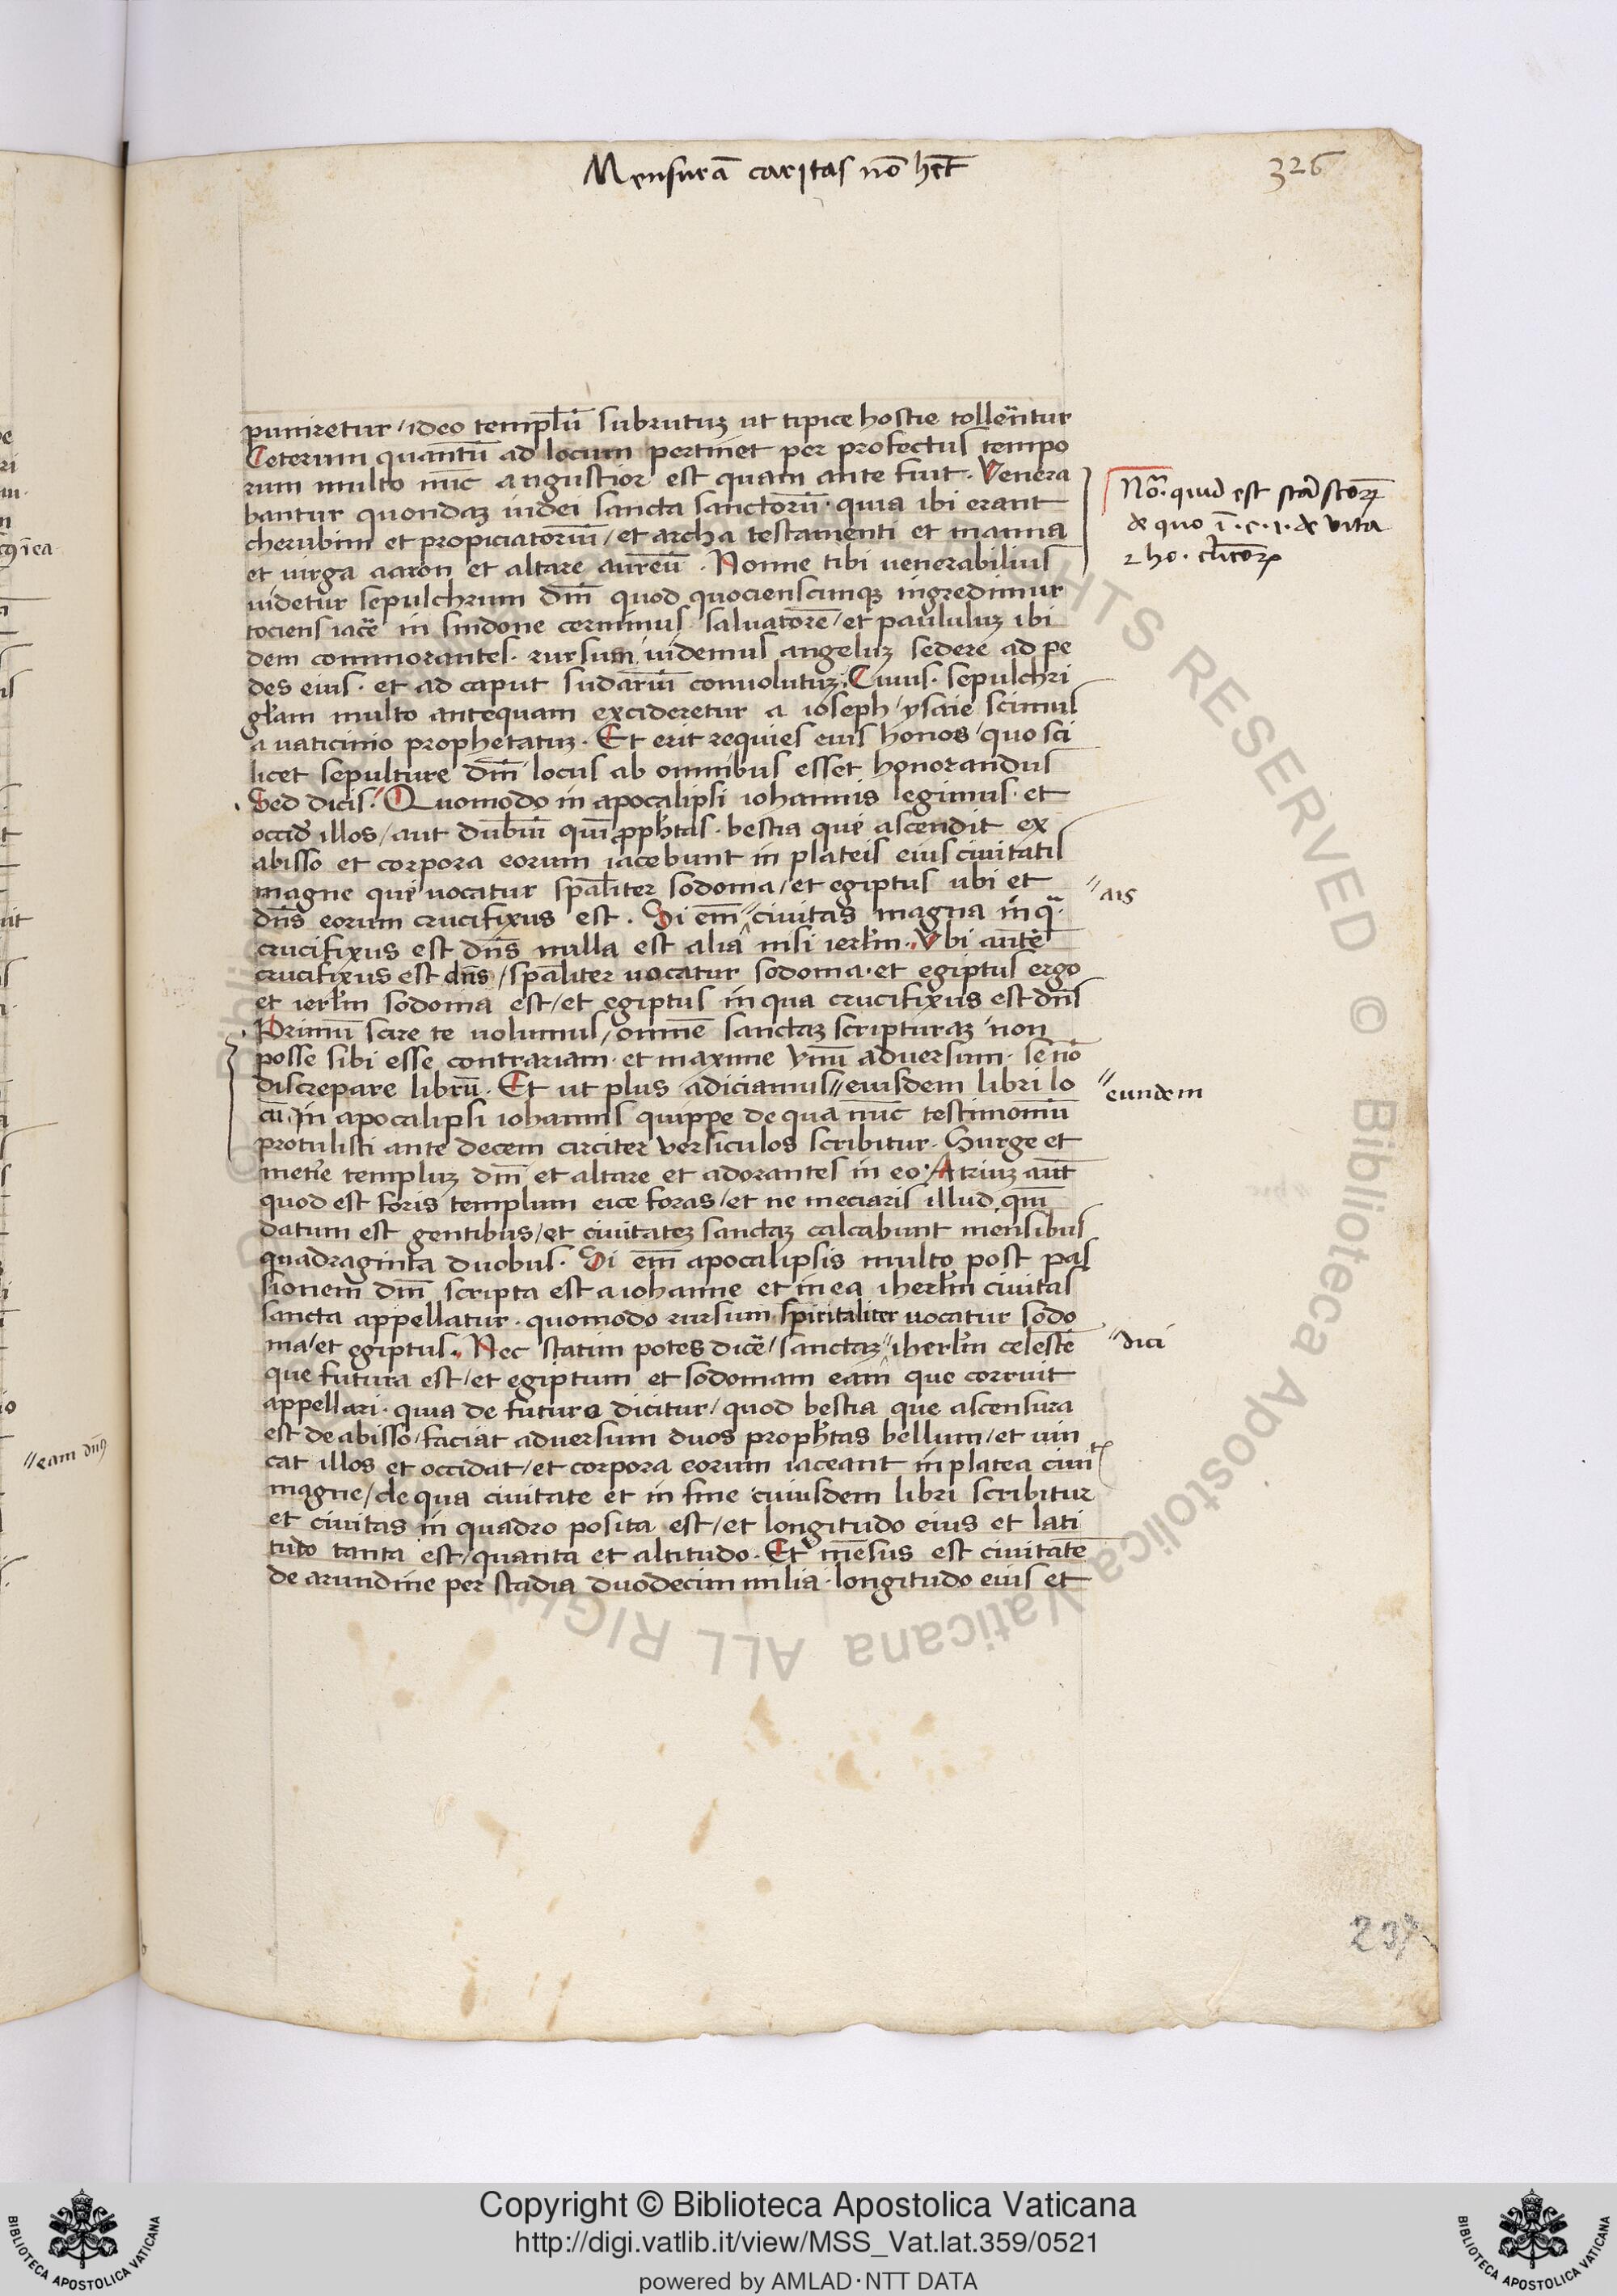 Mensurā caritas nō hēt
326
puniretur / ideo templū subrutuꝫ ut tipice hostie tollerētur
Ceterum quantū ad locum pertinet per profectus tempo
rum multo nūc angustior est quam ante fuit · Venera
bantur quondaꝫ iudei sancta sanctorū · quia ibi erant
cherubim et propiciatoriū / et archa testamenti et manna
et uirga aaron et altare aureū · Nonne tibi uenerabilius
uidetur sepulchrum dn̄i quod quocienscunqꝫ ingredimur
tociens iacē in sindone cernimus saluatorē / et paululuꝫ ibi
dem commorantes · rursum uidemus angeluꝫ sedere ad pe
des eius · et ad caput sudariū conuolutuꝫ · Cuius · sepulchri
gl̄am multo antequam excideretur a ioseph / ysaie scimus
a uaticinio prophetatuꝫ · Et erit requies eius honos / quo sci
licet sepulture dn̄i locus ab omnibus esset honorandus
Sed dicis · Quomodo in apocalipsi iohannis legimus · et
occid̄ illos / aut dubiū quī ꝓph̄tas · bestia que ascendit ex
abisso et corpora eorum iacebunt in plateis eius ciuitatis
magne que uocatur sp̄aliter sodoma / et egiptus ubi et
dn̄s eorum crucifixus est · Si em̄ // ciuitas magna in qᵃ ·
crucifixus est dn̄s nulla est aliā nisi ierl̄m · Vbi autē
crucifixus est dn̄s / sp̄aliter uocatur sodoma · et egiptus ergo
et ierl̄m sodoma est / et egiptus in qua crucifixus est dn̄s
Primū scire te uolumus / omnē sanctaꝫ scripturaꝫ non
posse sibi esse contrariam · et maxime vnū aduersum · se nō
discrepare librū · Et ut plus adiciamus // eiusdem libri lo
cū · in apocalipsi iohannis quippe de qua nūc testimoniū
protulisti ante decem circiter versiculos scribitur · Surge et
metire templuꝫ dn̄i et altare et adorantes in eo · Atriuꝫ aūt
quod est foris templum eice foras / et ne meciaris illud qm̄
datum est gentibus / et ciuitateꝫ sanctaꝫ calcabunt mensibus
quadraginta duobus · Si em̄ apocalipsis multo post pas
sionem dn̄i scripta est a iohanne et in ea iherl̄m ciuitas
sancta appellatur · quomodo rursum spiritaliter uocatur sodo
ma / et egiptus · Nec statim potes dicē / sanctaꝫ // iherl̄m celestē
que futura est / et egiptum et sodomam eam que corruit
appellari · quia de futuro dicitur / quod bestia que ascensura
est de abisso / faciat aduersum duos proph̄tas bellum / et uin
cat illos et occidat / et corpora eorum iaceant in platea ciuitꝭ
magne / de qua ciuitate et in fine cuiusdem libri scribitur
et ciuitas in quadro posita est / et longitudo eius et lati
tudo tanta est / quanta et altitudo · Et mēsus est ciuitatē
de arundine per stadia duodecim milia · longitudo eius et
Nōᵃ · quid est scā scōꝝ
de quo ī · c · 1 · de vita
⁊ ho · cl̄icoꝝ
// ais
// eundem
// dici
// eam dn̄s
237
© Biblioteca Apostolica Vaticana ALL RIGHTS RESERVED
Copyright © Biblioteca Apostolica Vaticana
http://digi.vatlib.it/view/MSS_Vat.lat.359/0521
powered by AMLAD·NTT DATA
BIBLIOTECA APOSTOLICA VATICANA
BIBLIOTECA APOSTOLICA VATICANA